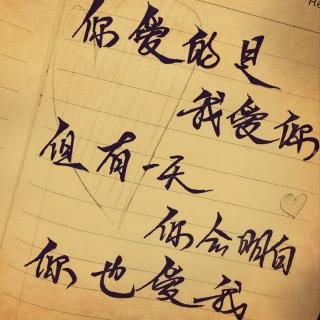 你爱的是
我爱你
但有一天
你会明白
你也爱我